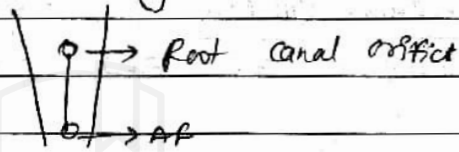 Root canal orifice
AF